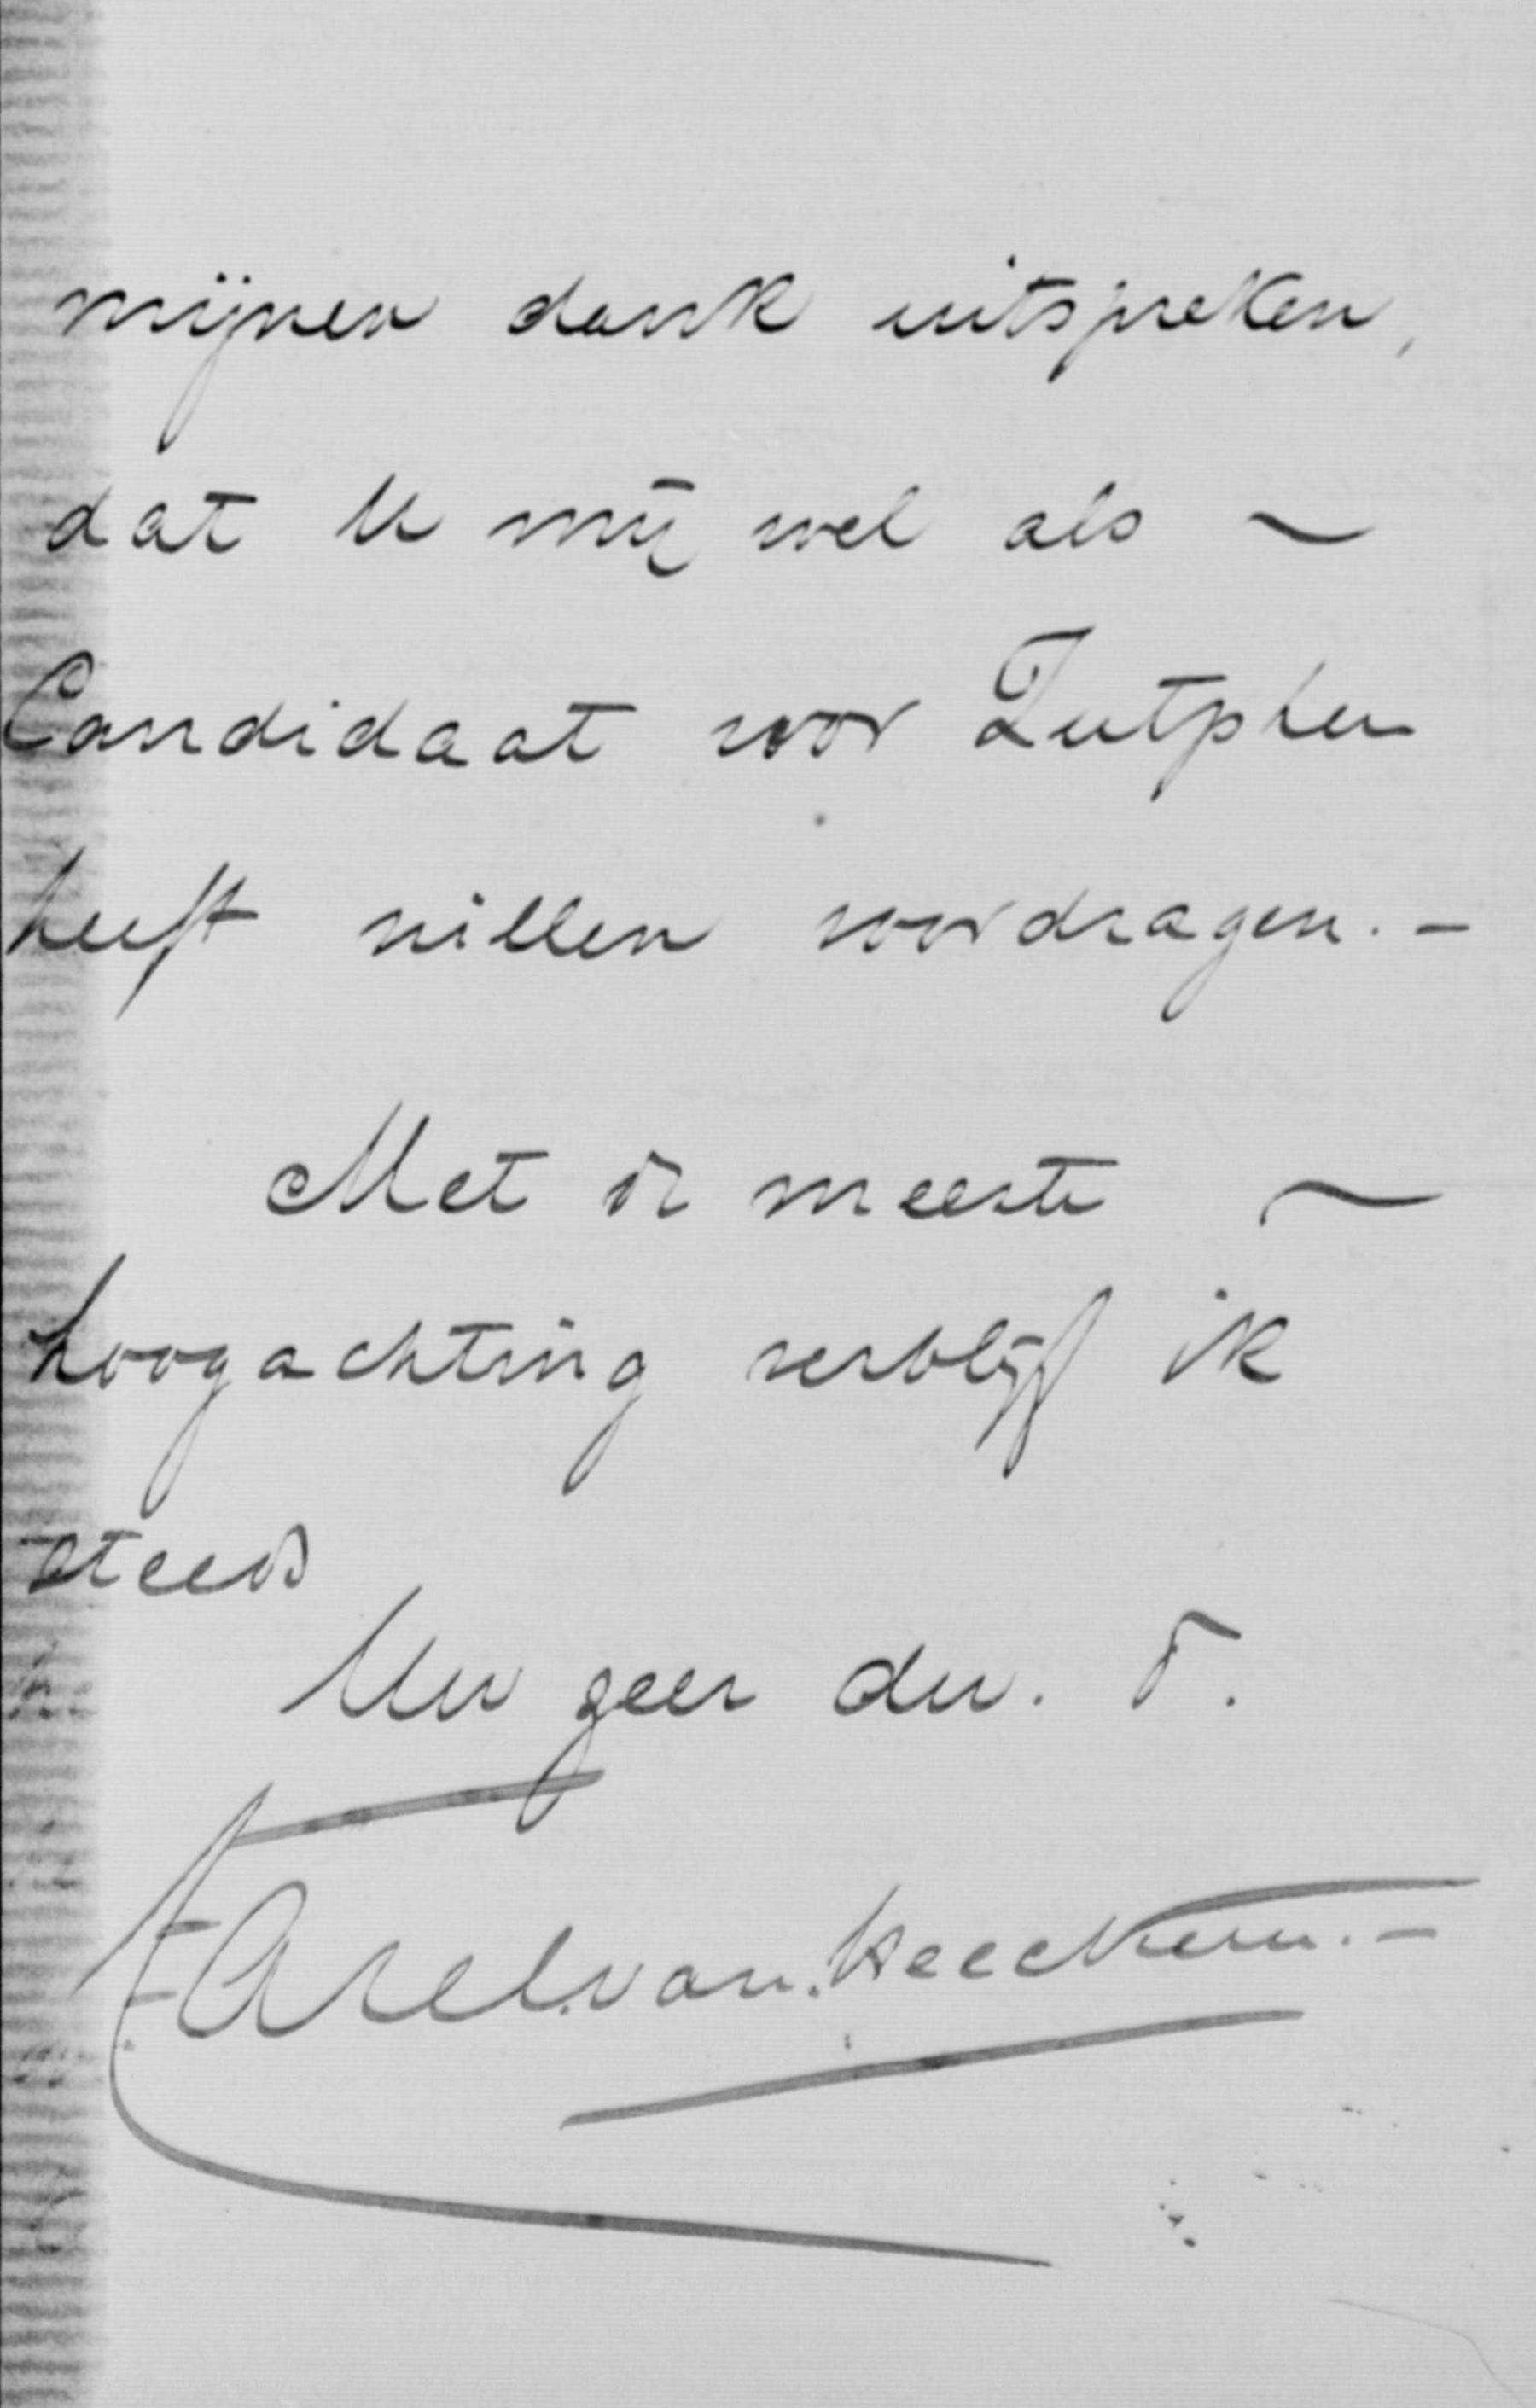 mijnen dank uitspreken,
dat U mij wel als ~
Candidaat voor Zutphen
heeft willen voordragen. -
Met de meeste ~
hoogachting verblijf ik
steeds
Uw zeer dw. d.
van Heeckeren. -